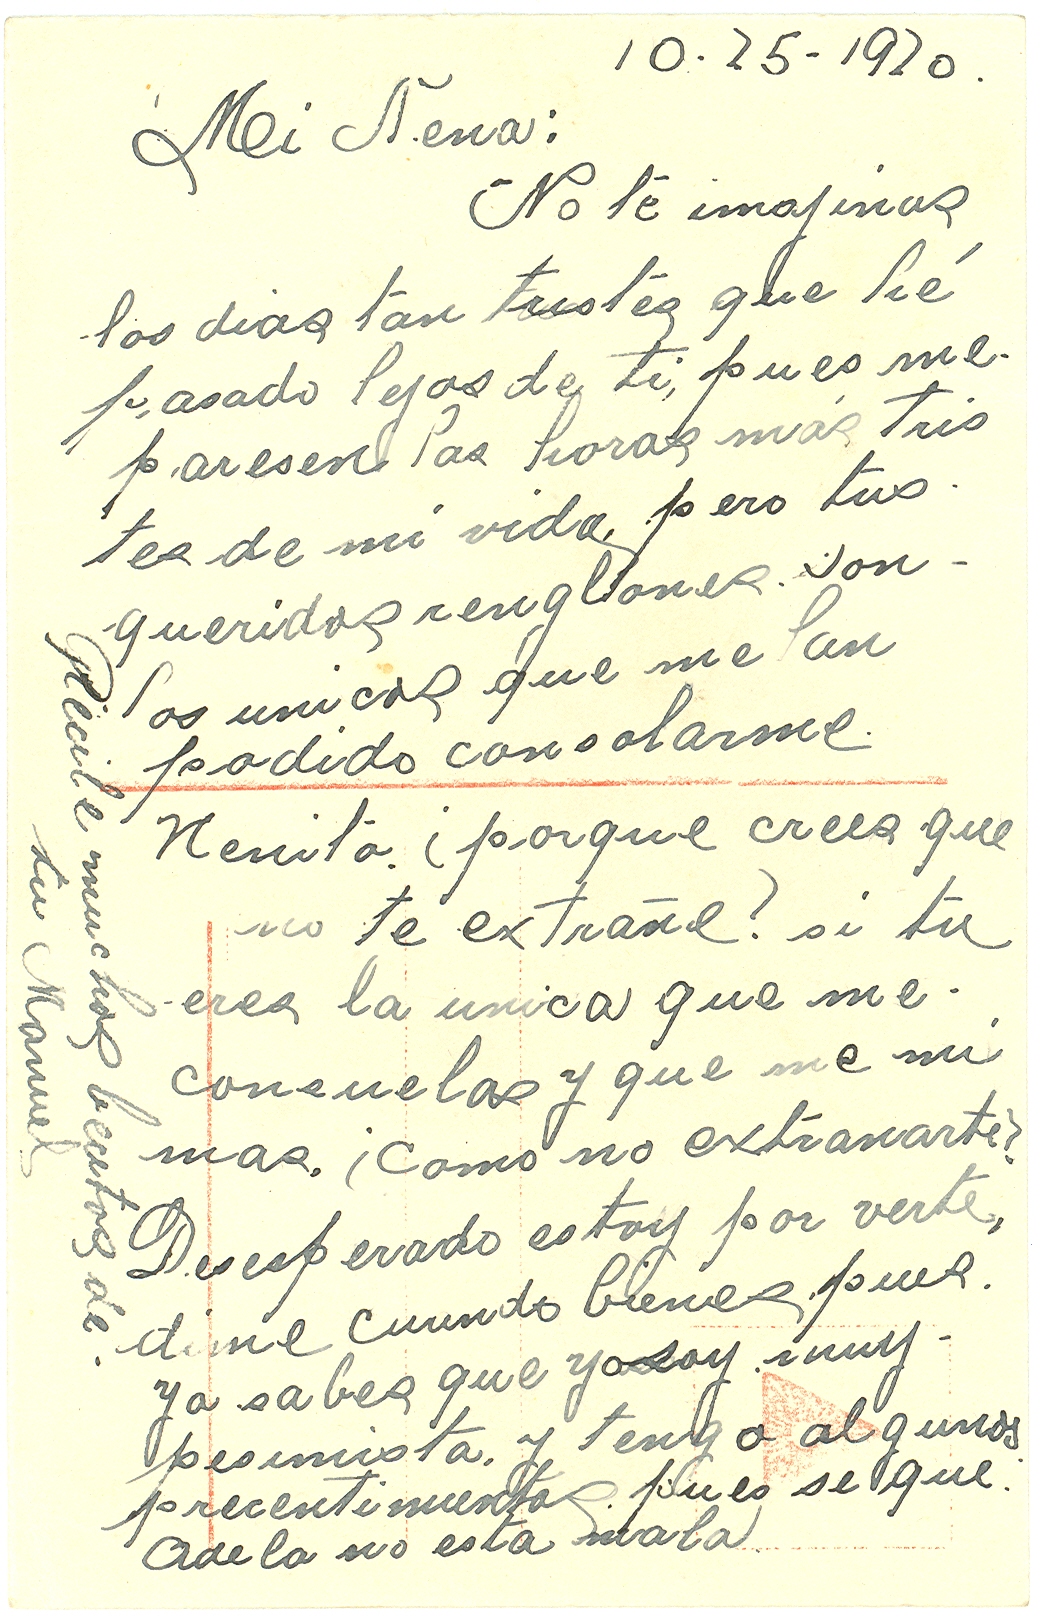 10-25-1920.
Mi Ñena:
No te imajinas
los dias tan tristes que hé
pasado lejos de ti, pues me-
paresen las horas más tris
tes de mi vida, pero tus-
queridos renglones. son-
los unicos que me han
podido consolarme.
Nenita. ¿porque crees que
no te extrañe? si tu
eres la unica que me-
consuelas y que me mi
mas. ¿Como no extranarte?
Desesperado estoy por verte,
dime cuando bienes, pues.
ya sabes que yo soy muy-
pesimista. y tengo algunos
precentimientos. pues se que.
Adela no esta mala.
Recibe muchos becitos de.
tu Manuel